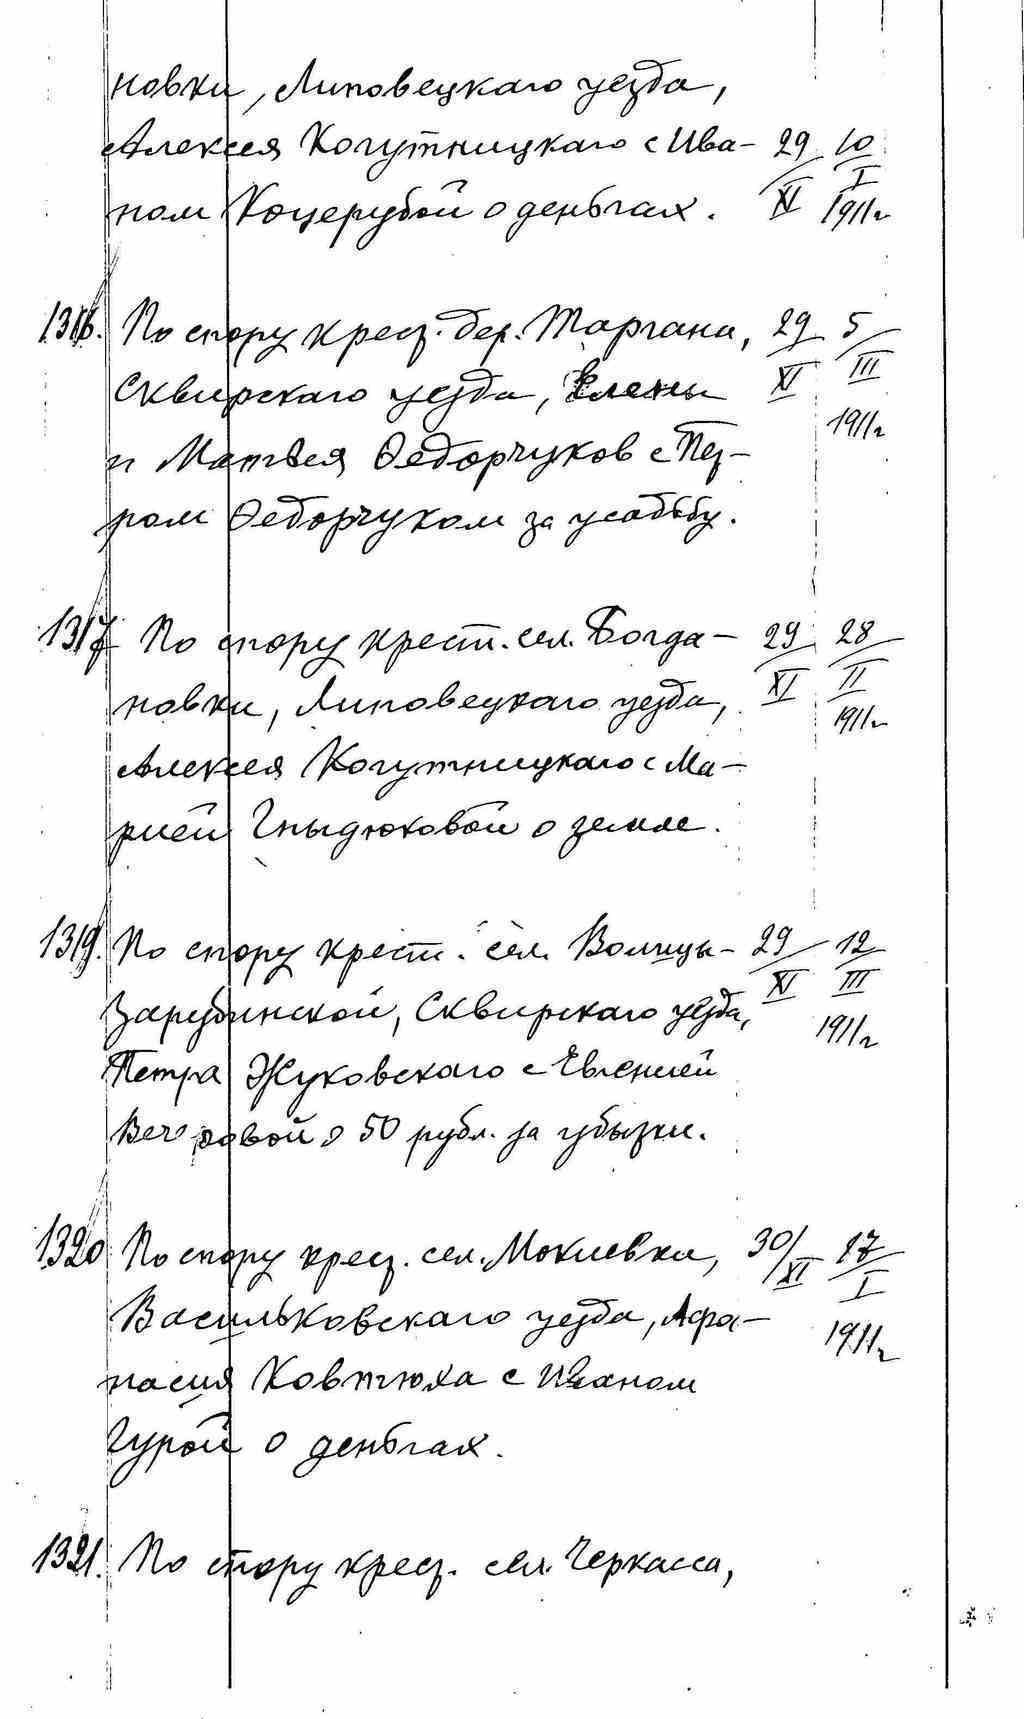 новки, Липовецкаго уезда,
Алексея Когутницкаго с Ива- 29 10
XI I
ном Коцерубой о деньгах. 1911г
1316. По спору крест. дер. Таргана, 29 5
XI III
Сквирскаго уезда, Елены
1911г
и Матвея Федорчуков с Пет-
ром Федорчуком за усадьбу.
1317 По спору крест. сел. Богда- 29 28
XI II
новки, Липовецкаго уезда, 1911г
Алексея Когутницкаго с Ма-
рией Гныдюковой о земле.
1319. По спору крест. сел. Волицы- 29 12
XI III
Зарубинской, Сквирскаго уезда, 1911г
Петра Жуковскаго с Евгенией
Вечеровой о 50 рубл. за убытки.
1320 По спору крест. сел. Мокиевки, 30/XI 17
I
Васильковскаго уезда, Афа- 1911г
насия Ковтюха с Иваном
Гурой о деньгах.
1321. По спору крест. сел. Черкасса,